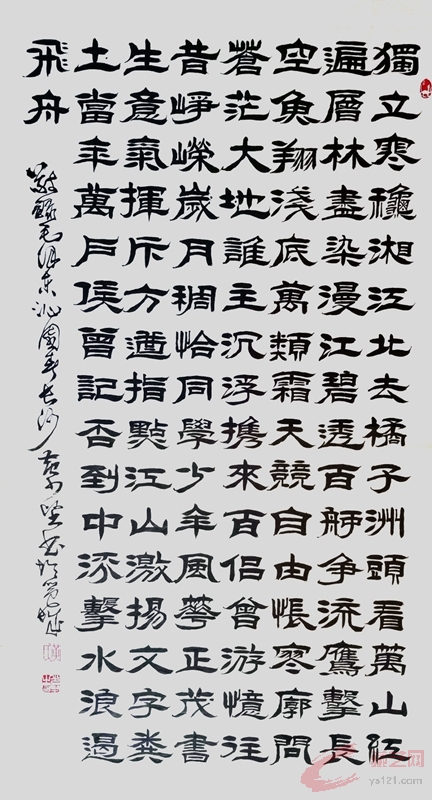 獨立寒龝湘江北去橘子洲頭看萬山红
遍層林盡染漫江碧透百舸争流鷹擊長
空魚翔淺底萬類霜天競自由悵寥廓問
蒼茫大地誰主沉浮攜來百侣曾游憶往
昔崢嶸歲月稠恰同學少年風華正茂書
生意氣揮斥方遒指點江山激揚文字糞
土當年萬户侯曾記否到中流擊水浪遏
飛舟
敬録毛澤東沁園春長沙
ys121.com